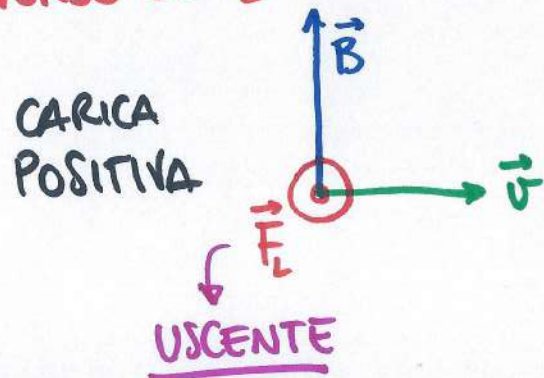 B
CARICA
POSITIVA
v
F_L
USCENTE